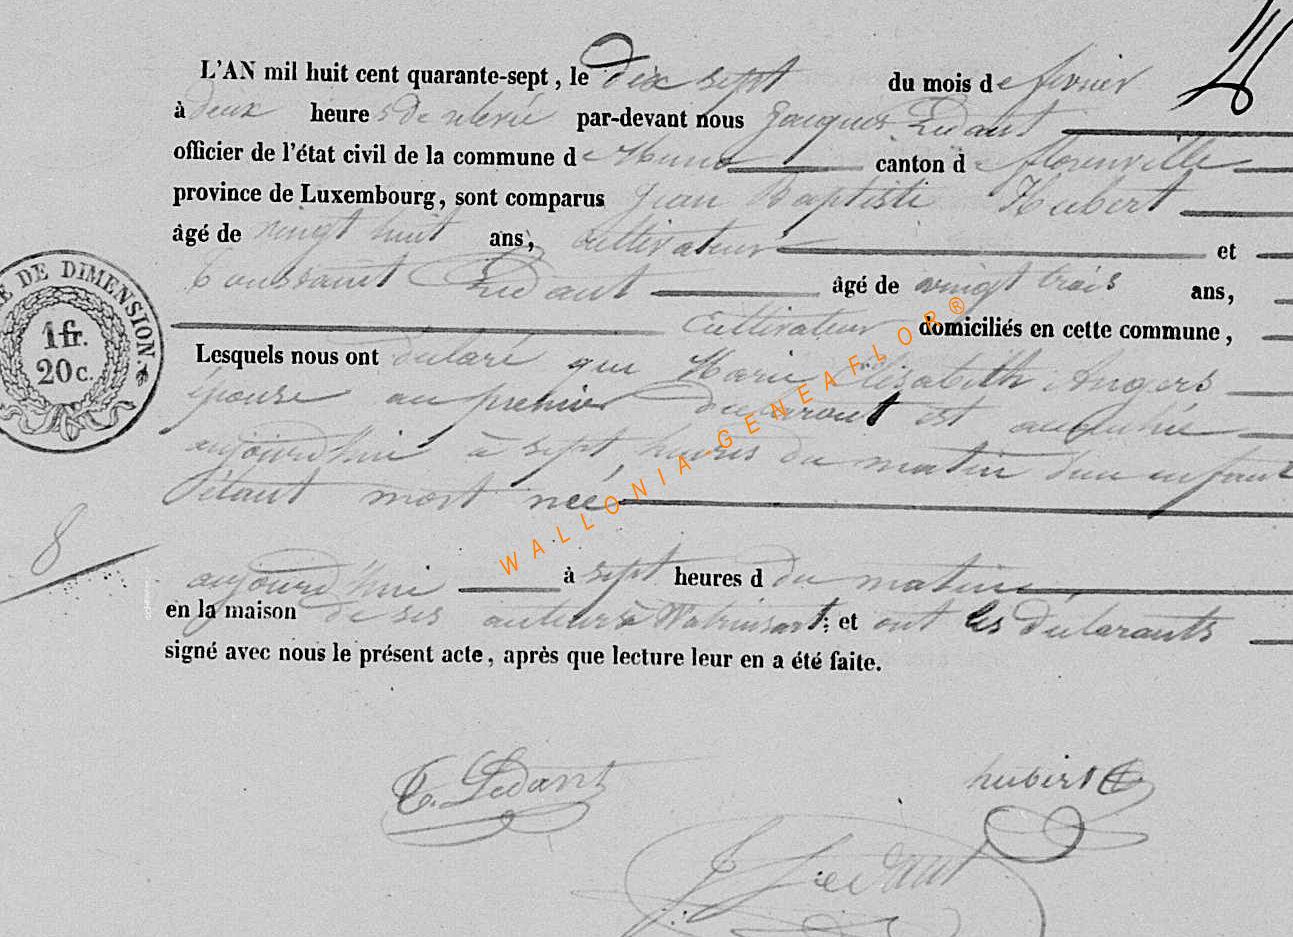 L'AN mil huit cent quarante-sept, le dix sept du mois de fevrier
à deux heures de relevée par-devant nous Jacques Ledant
officier de l'état civil de la commune de Muno canton de florenville
province de Luxembourg, sont comparus Jean Baptiste Hubert
âgé de vingt huit ans, Cultivateur et
Toussaint Ledant âgé de vingt trois ans,
Cultivateur domiciliés en cette commune,
Lesquels nous ont declaré que Marie Elisabeth Angers
épouse au premier declarant est accouchée
aujourd'hui à sept heures du matin d'un enfant
étant mort née
aujourd'hui à sept heures d du matin
en la maison de ses auteurs à Watrinsart; et ont les declarants
signé avec nous le présent acte, après que lecture leur en a été faite.
E DE DIMENSION.
1fr.
20c.
8
T. Ledant
hubert
J Ledant
WALLONIA-GENEAFLOR®